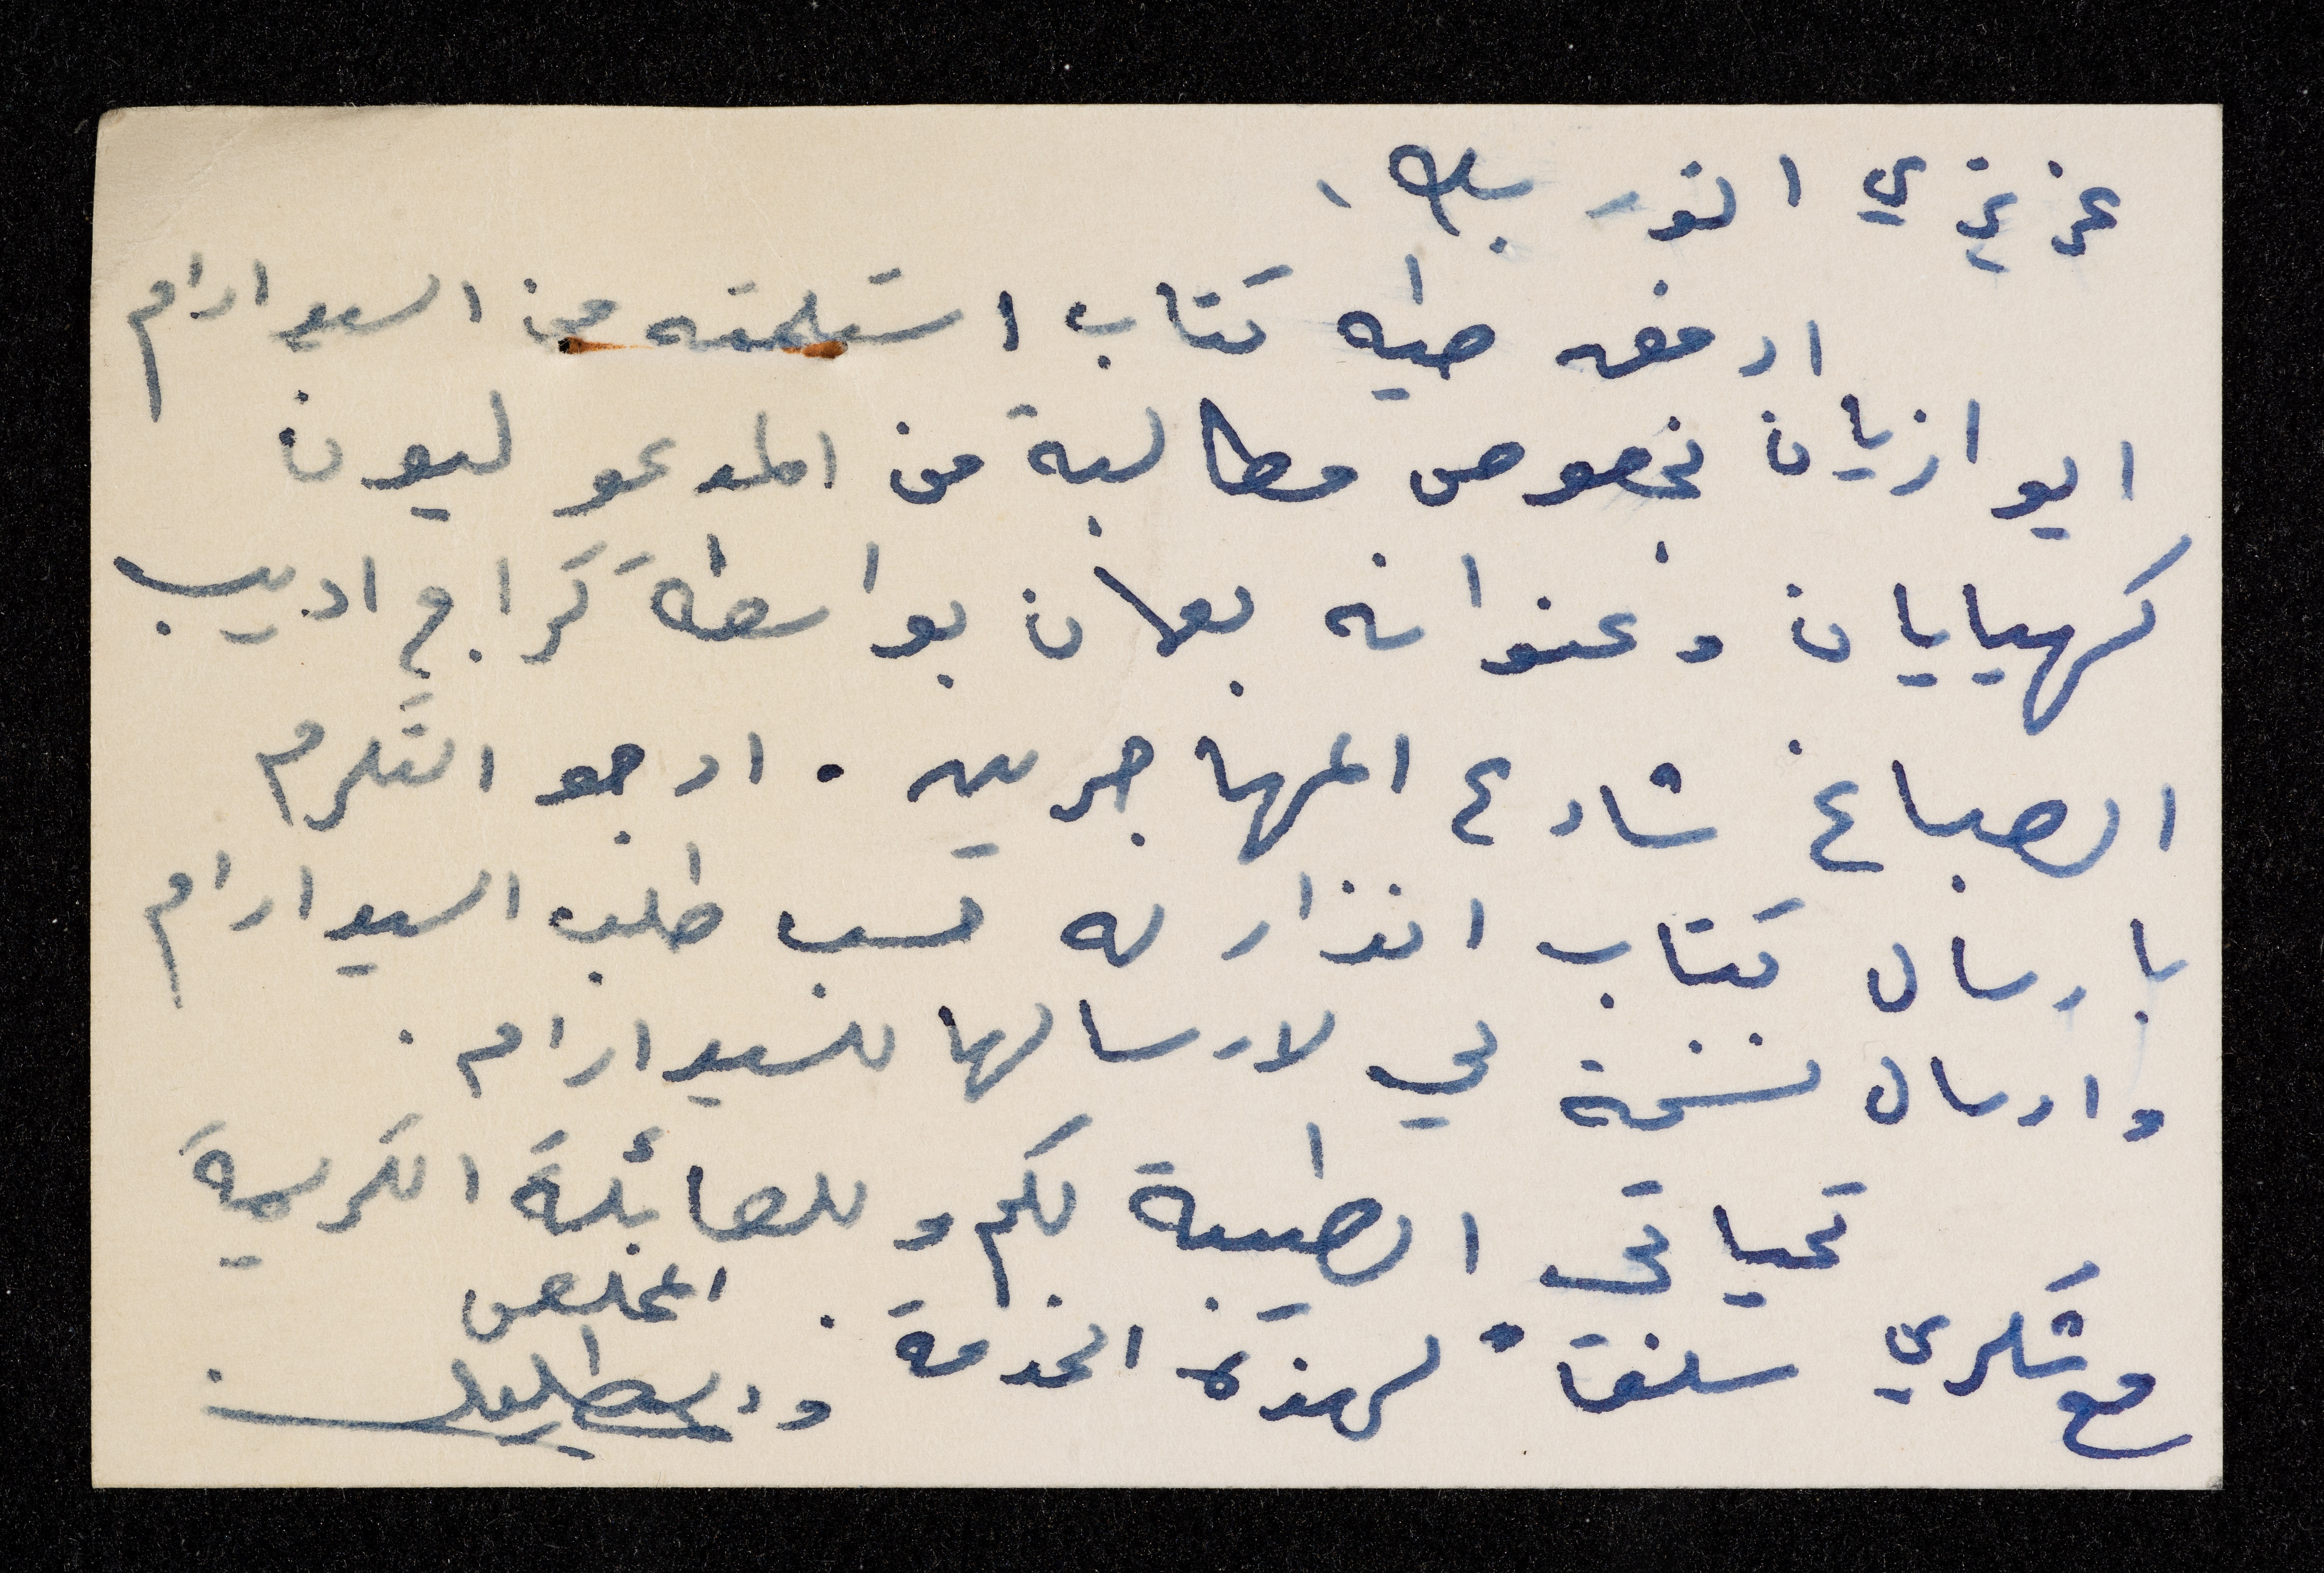 عزيزي انور بك،
ارفق طيه كتاب استلمته من السيد ارام
ايوازيان بخصوص مطالبة من المدعو ليون
كهيايان وعنوانه بعمان بواسطة كراج اديب
الصباغ شارع المهاجرين . ارجو التكرم
بارسال كتاب انذار له حسب طلب السيد ارام
وارسال نسخة لي لارسالها للسيد ارام .
تحياتي الطيبة لكم وللعائلة الكريمة
مع شكري سلفاً لهذه الخدمة .
المخلص